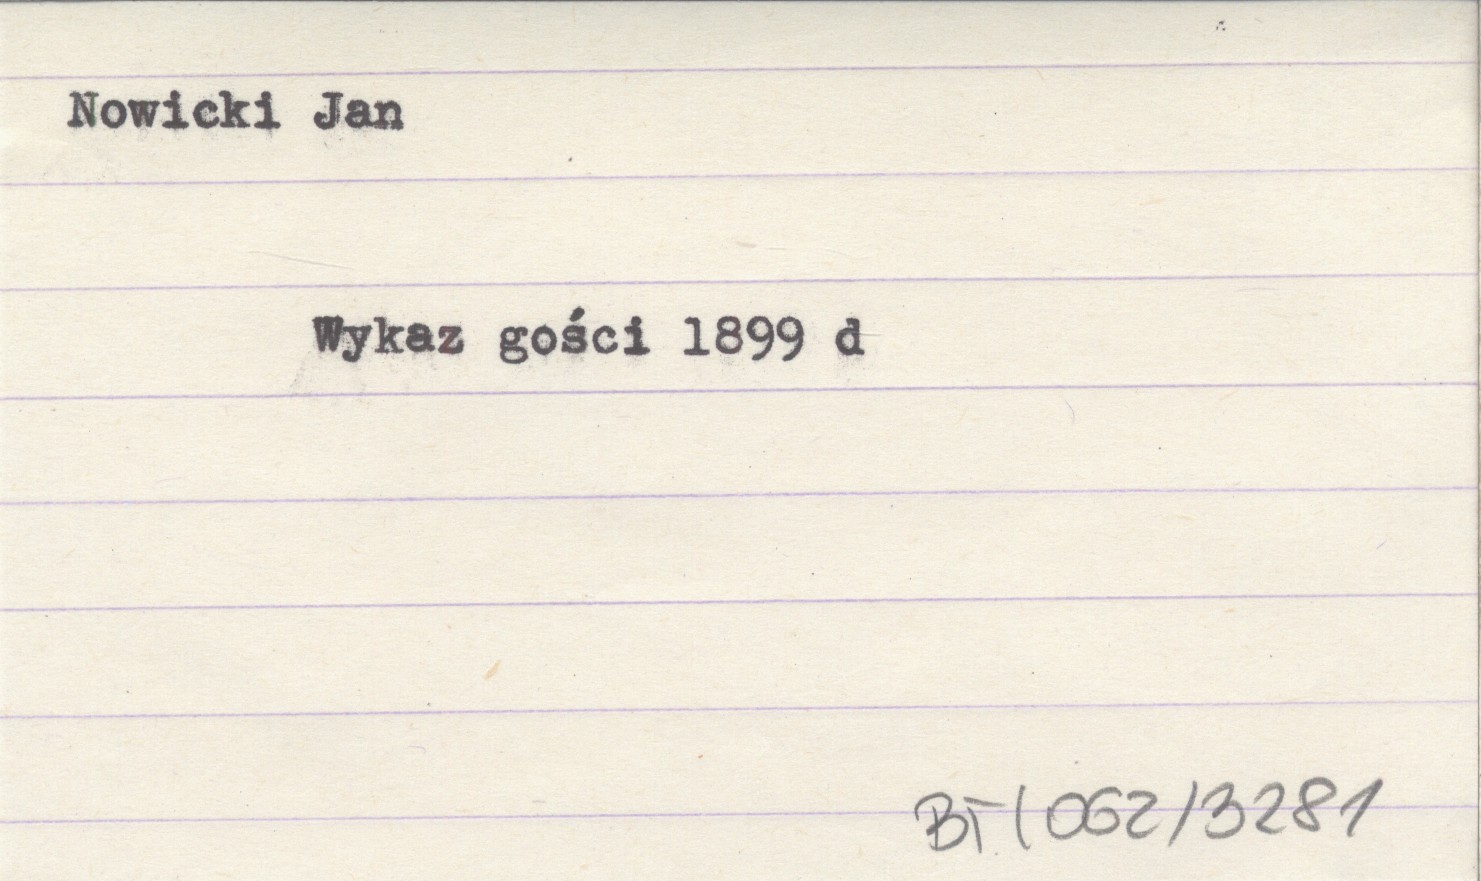 Nowicki Jan
Wykaz gości 1899 d
BT/062/3281